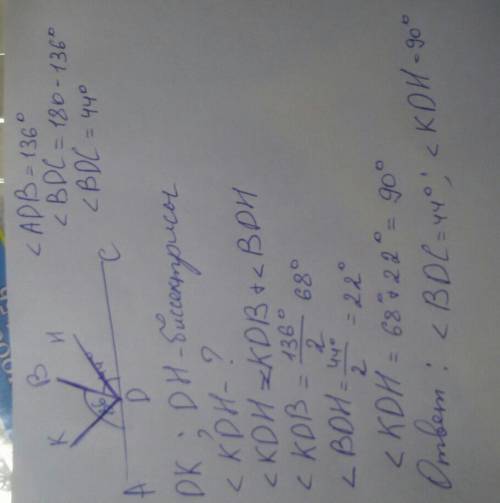 ∠ADB = 136°
∠BDC = 180 - 136°
∠BDC = 44°
K B H
A D C
DK; DH - биссектрисы
∠KDH - ?
∠KDH = KDB + ∠BDH
∠KDB = 136°/2 68°
∠BDH = 44°/2 = 22°
∠KDH = 68° + 22° = 90°
Ответ: ∠BDC = 44°; ∠KDH = 90°